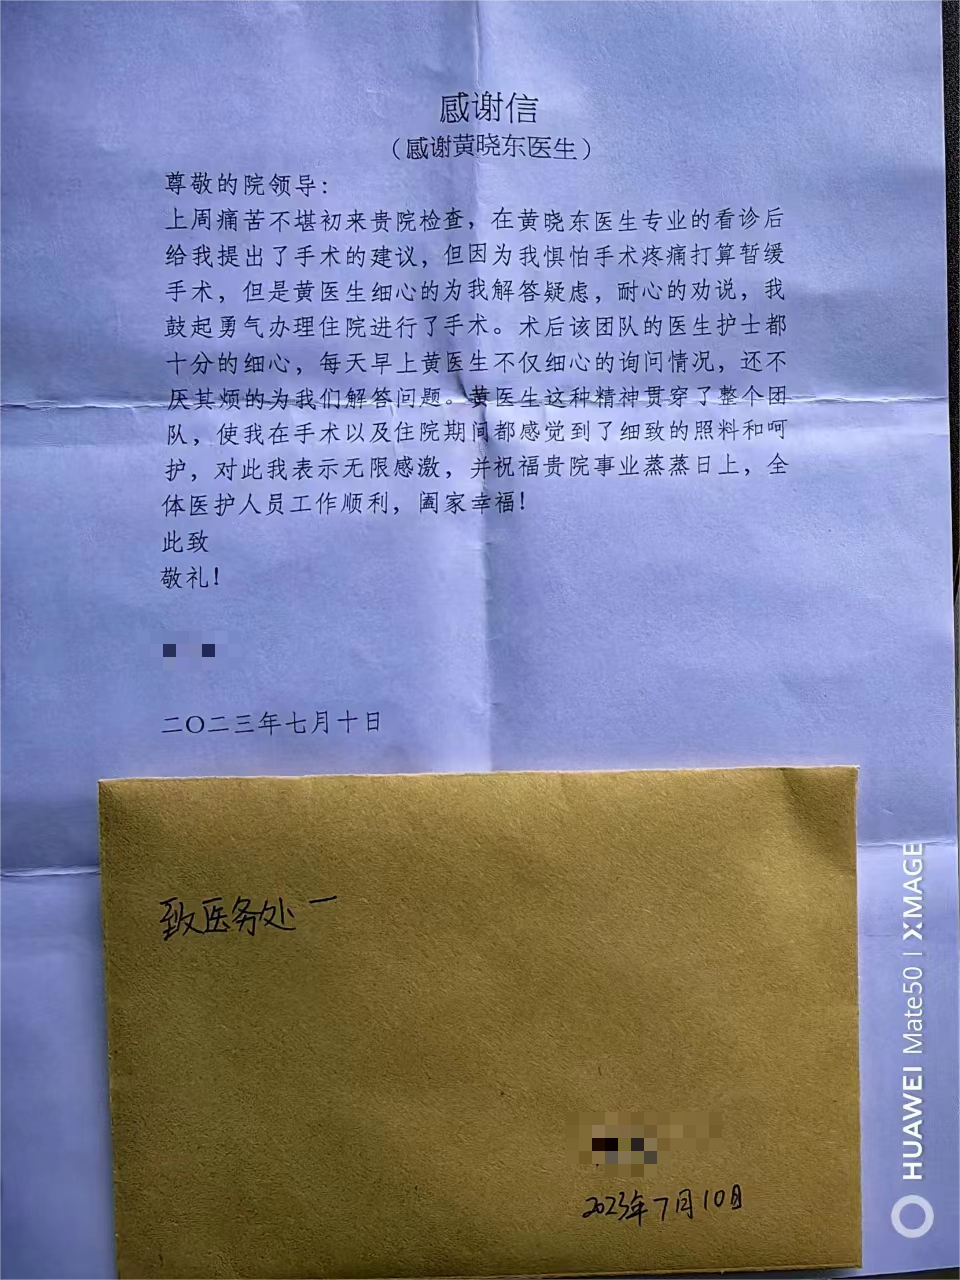 感谢信
（感谢黄晓东医生）
尊敬的院领导：
上周痛苦不堪初来贵院检查，在黄晓东医生专业的看诊后
给我提出了手术的建议，但因为我惧怕手术疼痛打算暂缓
手术，但是黄医生细心的为我解答疑虑，耐心的劝说，我
鼓起勇气办理住院进行了手术。术后该团队的医生护士都
十分的细心，每天早上黄医生不仅细心的询问情况，还不
厌其烦的为我们解答问题。黄医生这种精神贯穿了整个团
队，使我在手术以及住院期间都感觉到了细致的照料和呵
护，对此我表示无限感激，并祝福贵院事业蒸蒸日上，全
体医护人员工作顺利，阖家幸福！
此致
敬礼！
二〇二三年七月十日
致医务处一
2023年7月10日
HUAWEI Mate50 | XMAGE